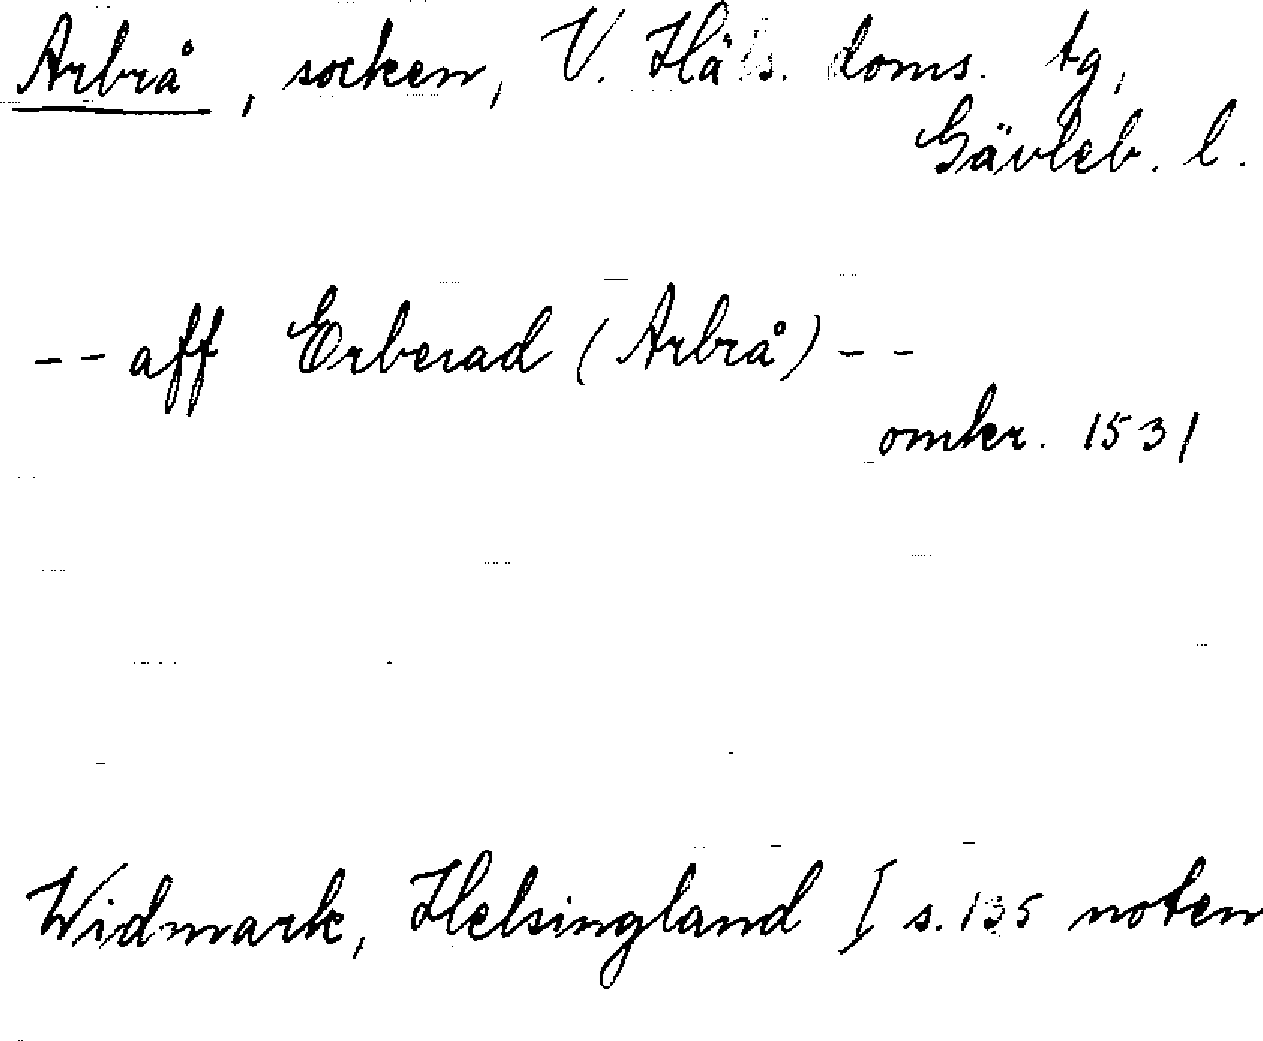 Arbrå, socken, V. Häls. doms. tg,
Gävleb. l.
-- aff Erberad (Arbrå) --
omkr. 1531
Widmark, Helsingland I s. 135 noten